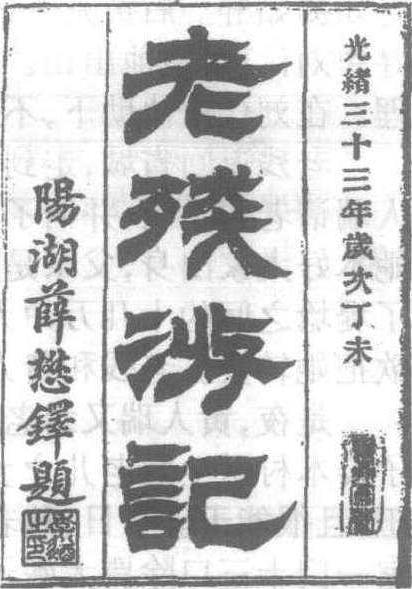 光緒三十三年歲次丁未
老殘游記
陽湖薛懋鐸題